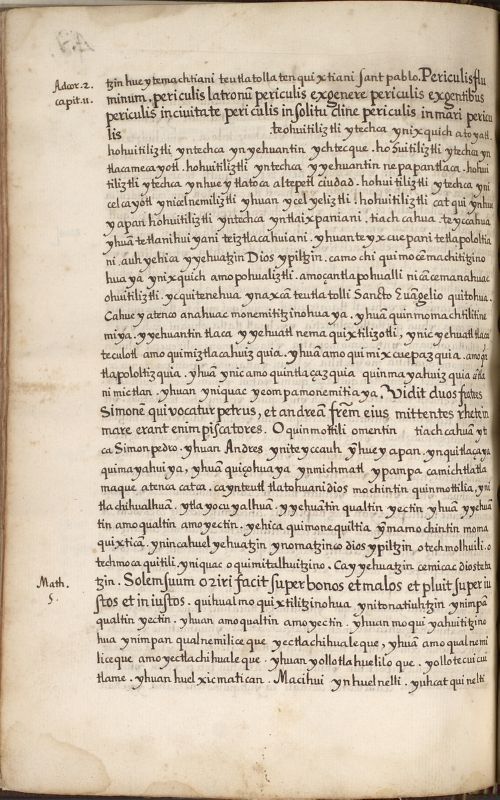 Adcor. 2.
capit. 11.
tzin hue ytemachtiani teutlatolla ten qui xtiani sant pablo. Periculis flu
minum. periculis latronũ periculis exgenere periculis exgentibus
periculis in ciuitate periculis in solitu dine periculis in mari pericu
lis teohuitiliztli ytechca ynixquich atoyatl.
hohuitiliztli yntechca ynyehuantin ychtecque. hohuitiliztli ytechca yn
tlacamecayotl. hohuitiliztli yntechca yyehuantin nepapantlaca. hohui
tiliztli ytechca ynhuey tlatoca altepetl ciudad. hohuitiliztli ytechca yni
celcayotl ynicelnemiliztli yhuan ycelyeliztli. hohuitiliztli cat qui ynhue
yapan hohuitiliztli yntechca yntlaixpaniani. tiachcahua. teyccahua
yhuã tetlanihuiyani teiztlacahuiani. yhuan teyxcuepani tetlapololtia
ni. auh yehica yyehuatzin Dios ypiltzin. camo chi qui mocẽmachitizino
huaya ynixquich amo pohualiztli. amoçantlapohualli nicã cemanahuac
ohuitiliztli. ycquitenehua ynaxcã teutlatolli Sancto Euãgelio quitohua.
Cahuey atenco anahuac monemititzinohuaya. yhuã quinmomachtilitine
miya. yyehuantin tlaca yyehuatl nemaquixtilizotli, ynic yehuatl tlaca
teculotl amo quimiztlacahuizquia. yhuã amo quimixcuepazquia. amo qui
tlapololtizquia. yhuã ynic amo quintlaçazquia quinmayahuizquia
ni mictlan. yhuan yniquac yeompamonemitiaya. Vidit duos fratres
Simonẽ qui vocatur petrus, et andreã frẽm eius mittentes rhete in
mare erant enim piscatores. O quinmottili omentin tiachcahuã yt
ca Simon pedro. yhuan Andres yniteyccauh ỹhueyapan. ynquitlacaya
quimayahuiya, yhuã quiçohuaya ynmichmatl ypampa camichtlatla
maque atenca catca. caynteutl tlatohuani dios mochintin quinmottilia, yni
tlachihualhuã. ytlayocuyalhuã. yyehuãtin qualtin yectin yhuã yyehuã
tin amo qualtin amo yectin. yehica quimonequiltia ỹmamochintin moma
quixticã. ynincahuel yehuatzin ynomatzinco dios ypiltzin otechmolhuili. o
techmocaquitili. yniquac oquimitalhuitzino. Cayyehuatzin cemicac dios teta
tzin. Solem suum oziri facit super bonos et malos et pluit super iu
stos et in iustos. quihualmoquixtilitzinohua ynitonatiuhtzin ynimpã
qualtin yectin. yhuan amo qualtin amo yectin. yhuan moquiyahuititzino
hua ynimpan qualnemiliceque yectlachihualeque, yhuã amo qualnemi
liceque amo yectlachihualeque. yhuan yollotlahueliloque. yollotecuicui
tlame. yhuan huel xicmatican. Macihui ynhuelnelli. yuhcatqui nelti
Math.
5.